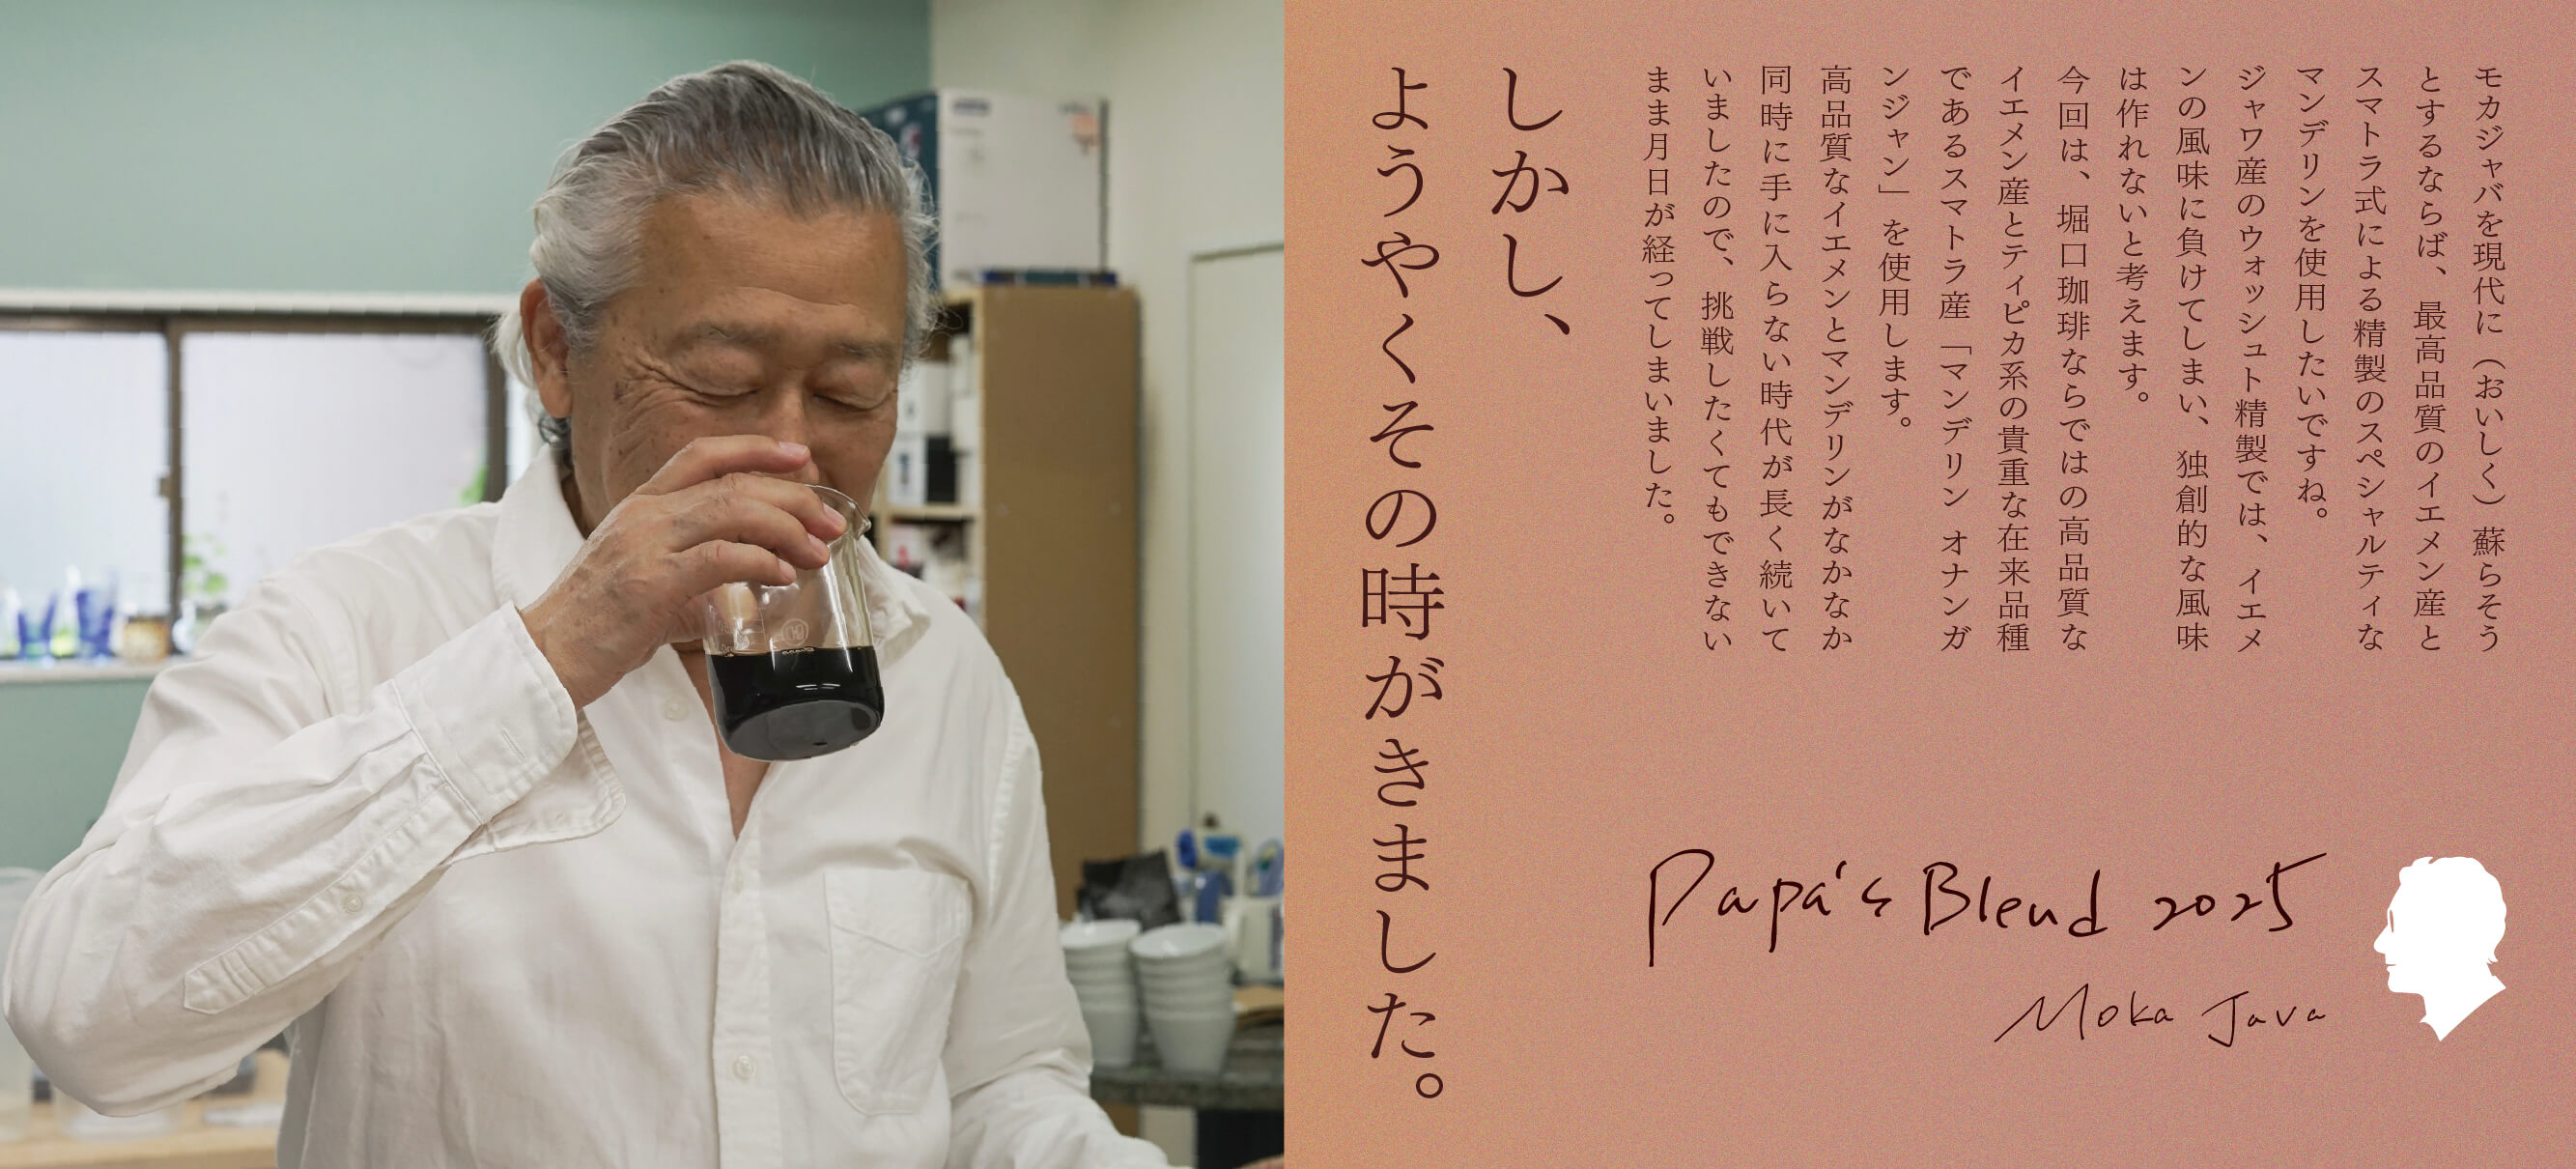 モカジャバを現代に（おいしく）蘇らそう
とするならば、最高品質のイエメン産と
スマトラ式による精製のスペシャルティな
マンデリンを使用したいですね。
ジャワ産のウォッシュト精製では、イエメ
ンの風味に負けてしまい、独創的な風味
は作れないと考えます。
今回は、堀口珈琲ならではの高品質な
イエメン産とティピカ系の貴重な在来品種
であるスマトラ産「マンデリン オナンガ
ンジャン」を使用します。
高品質なイエメンとマンデリンがなかなか
同時に手に入らない時代が長く続いて
いましたので、挑戦したくてもできない
まま月日が経ってしまいました。
しかし、
ようやくその時がきました。
Papa's Blend 2025
Moka Java